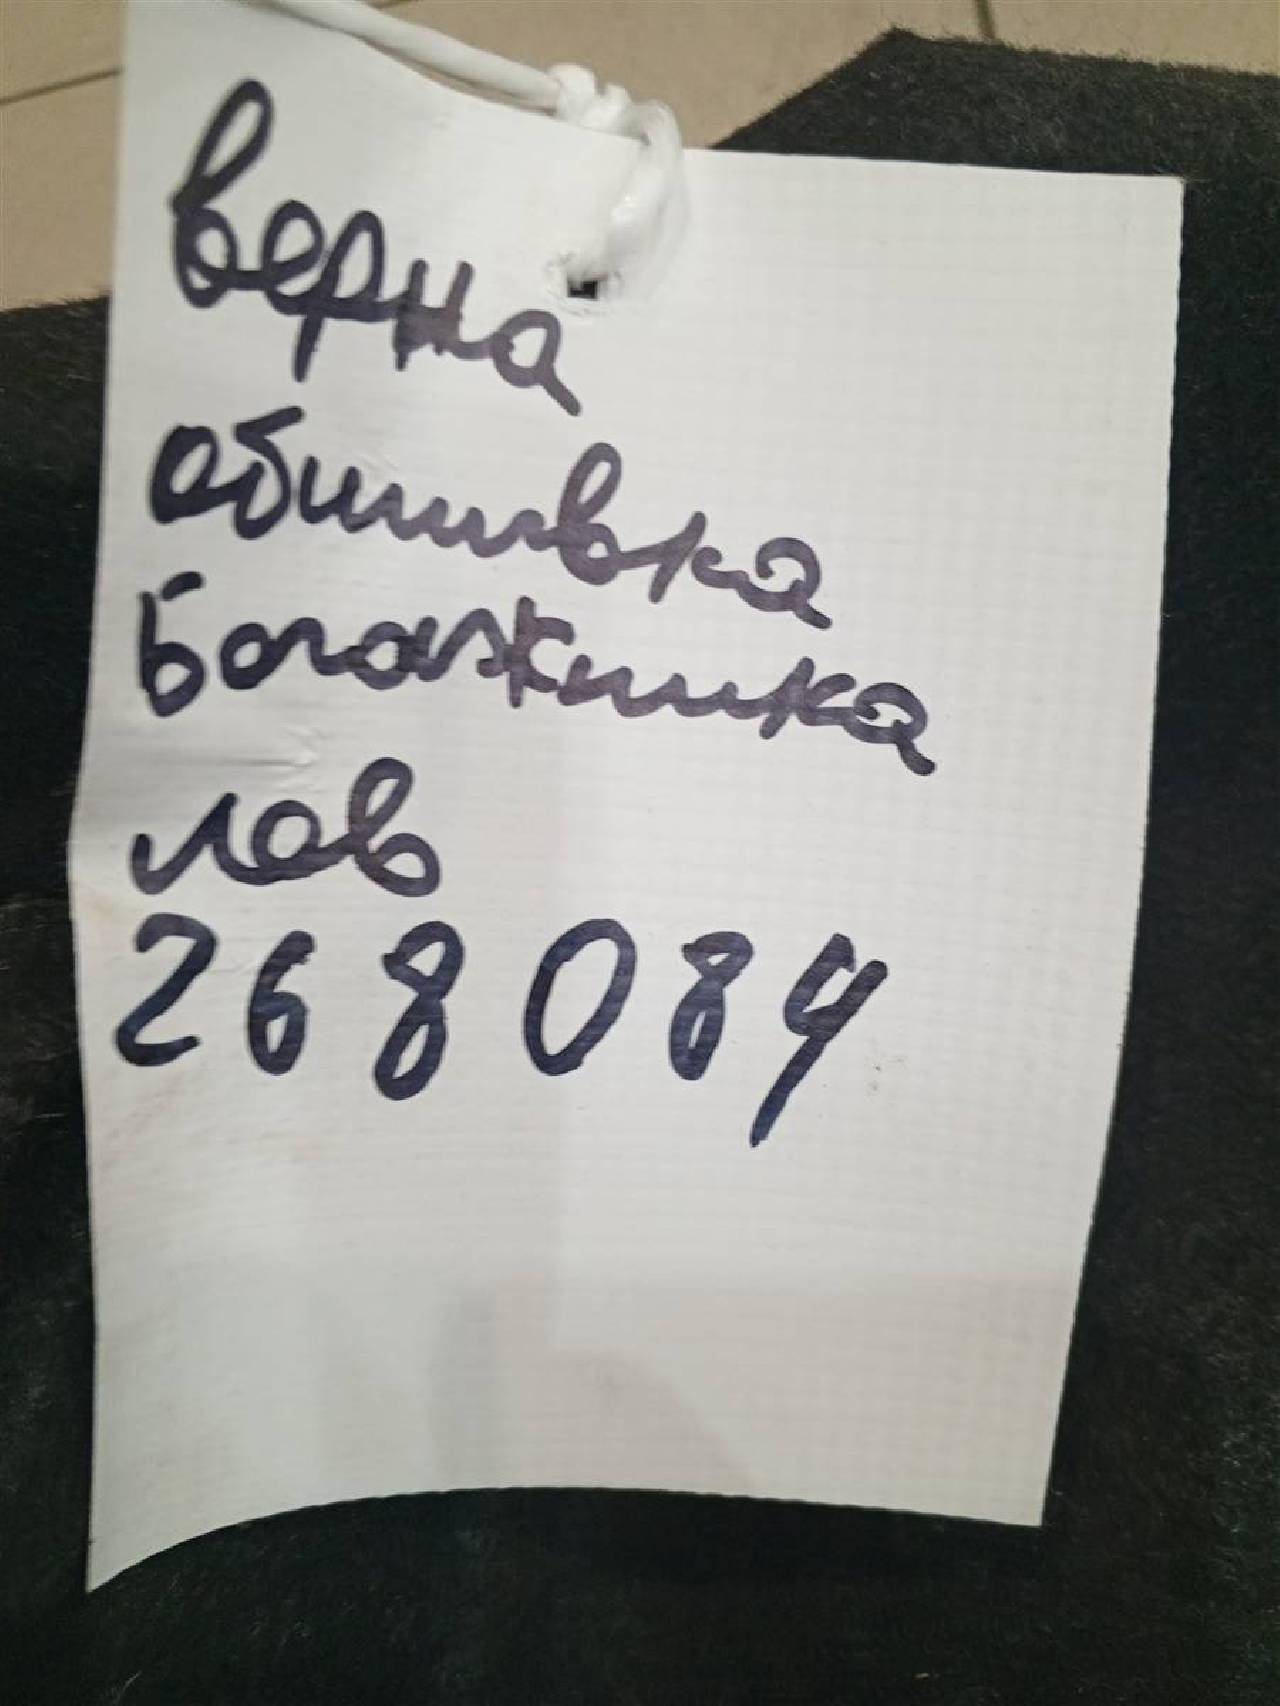 верна
обшивка
Богажника
лев
268084